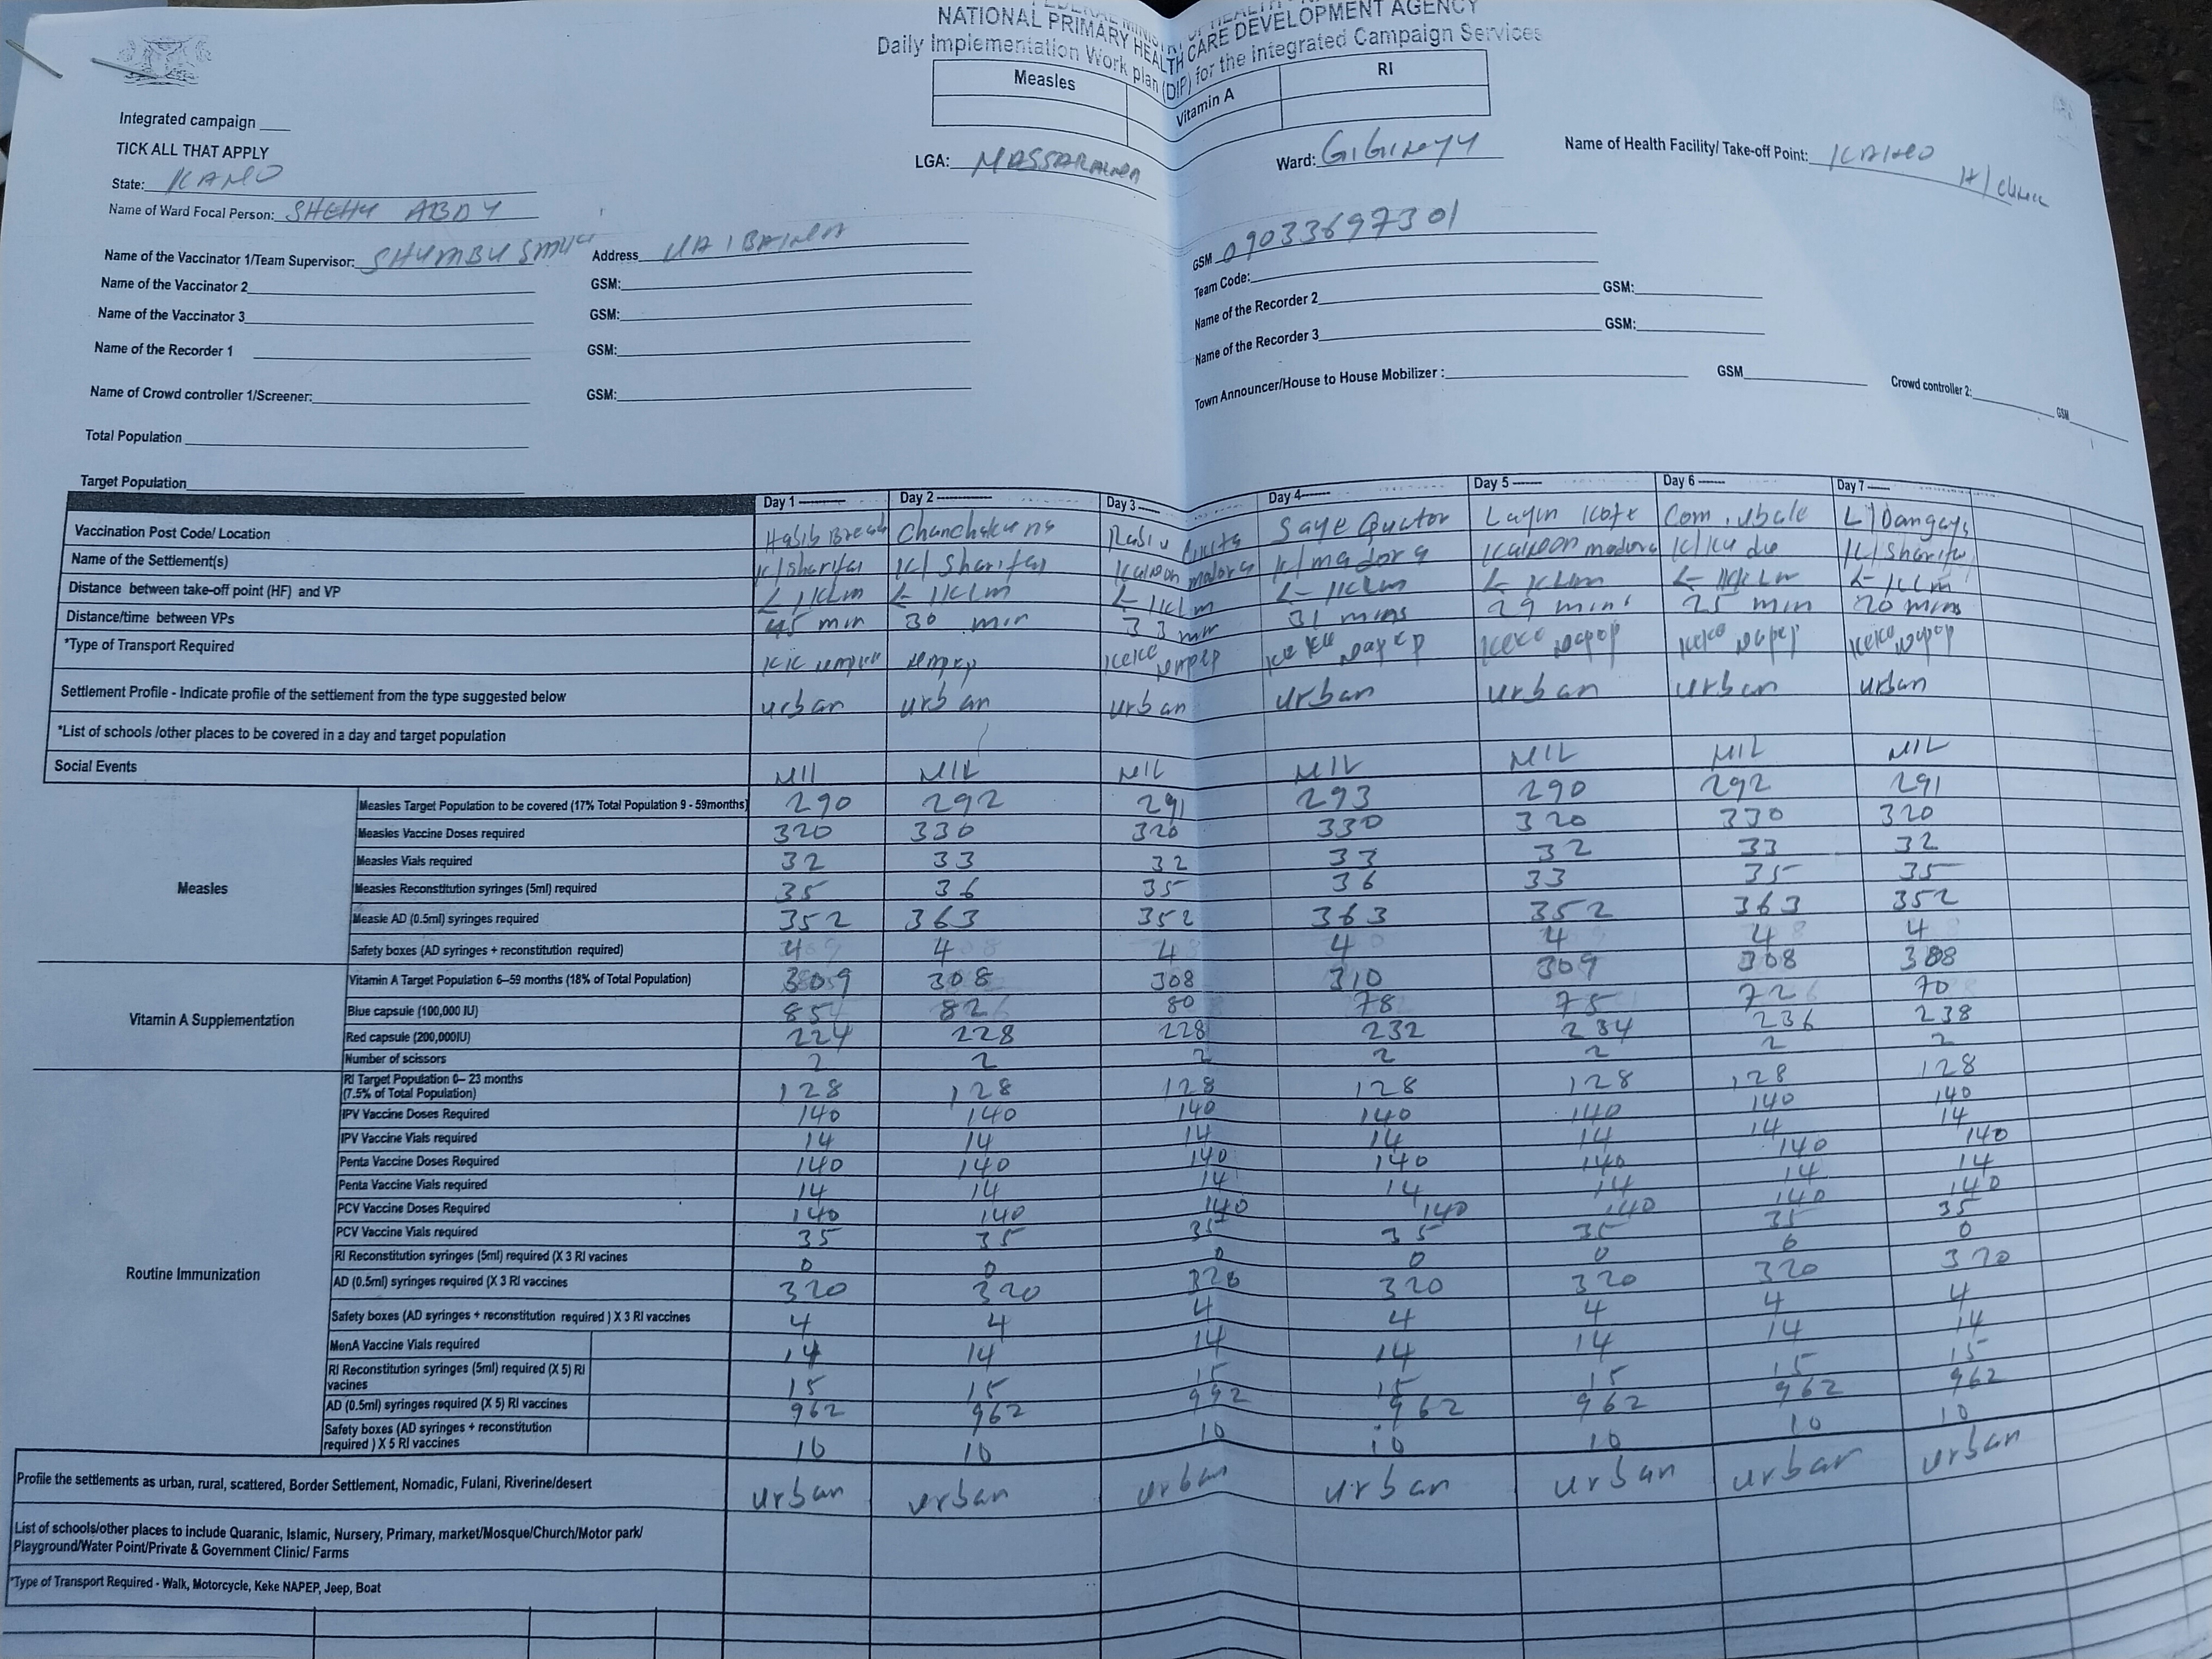 NATIONAL PRIMARY HEALTH CARE DEVELOPMENT AGENCY
Daily Implementation Work plan (DIP) for the Integrated Campaign Services
Integrated campaign
TICK ALL THAT APPLY
Measles Vitamin A RI
State: KANO LGA: Ward: Name of Health Facility/ Take-off Point: H/Clinic
Name of Ward Focal Person: SHEHU ABDU
Name of the Vaccinator 1/Team Supervisor: Address GSM 09033697301
Name of the Vaccinator 2 GSM: Team Code:
Name of the Vaccinator 3 GSM: Name of the Recorder 2 GSM:
Name of the Recorder 1 GSM: Name of the Recorder 3 GSM:
Name of Crowd controller 1/Screener: GSM: Town Announcer/House to House Mobilizer: GSM Crowd controller 2: GSM
Total Population
Target Population
Day 1 Day 2 Day 3 Day 4 Day 5 Day 6 Day 7
Vaccination Post Code/ Location
Name of the Settlement(s) K/Sharifai K/Sharifai
Distance between take-off point (HF) and VP
Distance/time between VPs 45 min 30 min 33 min 31 mins 29 mins 25 min 20 mins
*Type of Transport Required
Settlement Profile - Indicate profile of the settlement from the type suggested below urban urban urban urban urban urban urban
*List of schools /other places to be covered in a day and target population
Social Events NIL NIL NIL NIL NIL NIL NIL
Measles
Measles Target Population to be covered (17% Total Population 9 - 59months) 290 292 291 293 290 292 291
Measles Vaccine Doses required 320 330 320 330 320 330 320
Measles Vials required 32 33 32 33 32 33 32
Measles Reconstitution syringes (5ml) required 35 36 35 36 33 35 35
Measle AD (0.5ml) syringes required 352 363 352 363 352 363 352
Safety boxes (AD syringes + reconstitution required) 4 4 4 4 4 4 4
Vitamin A Supplementation
Vitamin A Target Population 6–59 months (18% of Total Population) 309 308 308 310 309 308 308
Blue capsule (100,000 IU) 85 82 80 78 75 72 70
Red capsule (200,000IU) 224 228 228 232 234 236 238
Number of scissors 2 2 2 2 2 2 2
Routine Immunization
RI Target Population 0– 23 months
(7.5% of Total Population) 128 128 128 128 128 128 128
IPV Vaccine Doses Required 140 140 140 140 140 140 140
IPV Vaccine Vials required 14 14 14 14 14 14 14
Penta Vaccine Doses Required 140 140 140 140 140 140 140
Penta Vaccine Vials required 14 14 14 14 14 14 14
PCV Vaccine Doses Required 140 140 140 140 140 140 140
PCV Vaccine Vials required 35 35 35 35 35 35 35
RI Reconstitution syringes (5ml) required (X 3 RI vacines 0 0 0 0 0 0 0
AD (0.5ml) syringes required (X 3 RI vaccines 320 320 320 320 320 320 320
Safety boxes (AD syringes + reconstitution required ) X 3 RI vaccines 4 4 4 4 4 4 4
MenA Vaccine Vials required 14 14 14 14 14 14 14
RI Reconstitution syringes (5ml) required (X 5) RI
vacines 15 15 15 15 15 15 15
AD (0.5ml) syringes required (X 5) RI vaccines 962 962 992 962 962 962 962
Safety boxes (AD syringes + reconstitution
required ) X 5 RI vaccines 10 10 10 10 10 10 10
Profile the settlements as urban, rural, scattered, Border Settlement, Nomadic, Fulani, Riverine/desert urban urban urban urban urban urban urban
List of schools/other places to include Quranic, Islamic, Nursery, Primary, market/Mosque/Church/Motor park/
Playground/Water Point/Private & Government Clinic/ Farms
*Type of Transport Required - Walk, Motorcycle, Keke NAPEP, Jeep, Boat